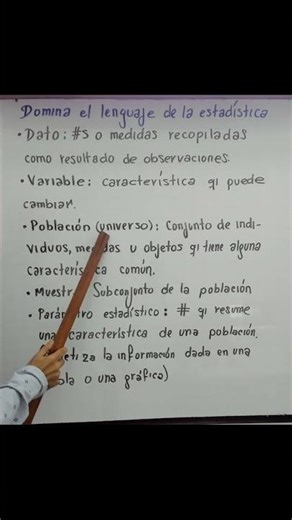 Domina el lenguaje de la estadística
• Dato: #s o medidas recopiladas
como resultado de observaciones.
• Variable: característica qi puede
cambiar.
• Población (universo): Conjunto de indi-
viduos, o objetos qi tiene alguna
característica común.
• Subconjunto de la población
• estadístico: # qi resume
una característica de una población.
la información dada en una
o una gráfica)